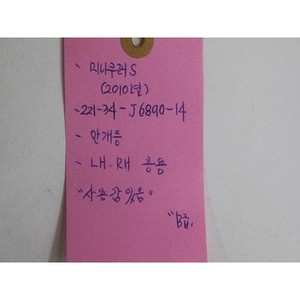 - 미니쿠퍼S
(2010년)
- 221-34-J6890-14
- 안개등
- LH.RH 공용
"사용감있음"
"B급.